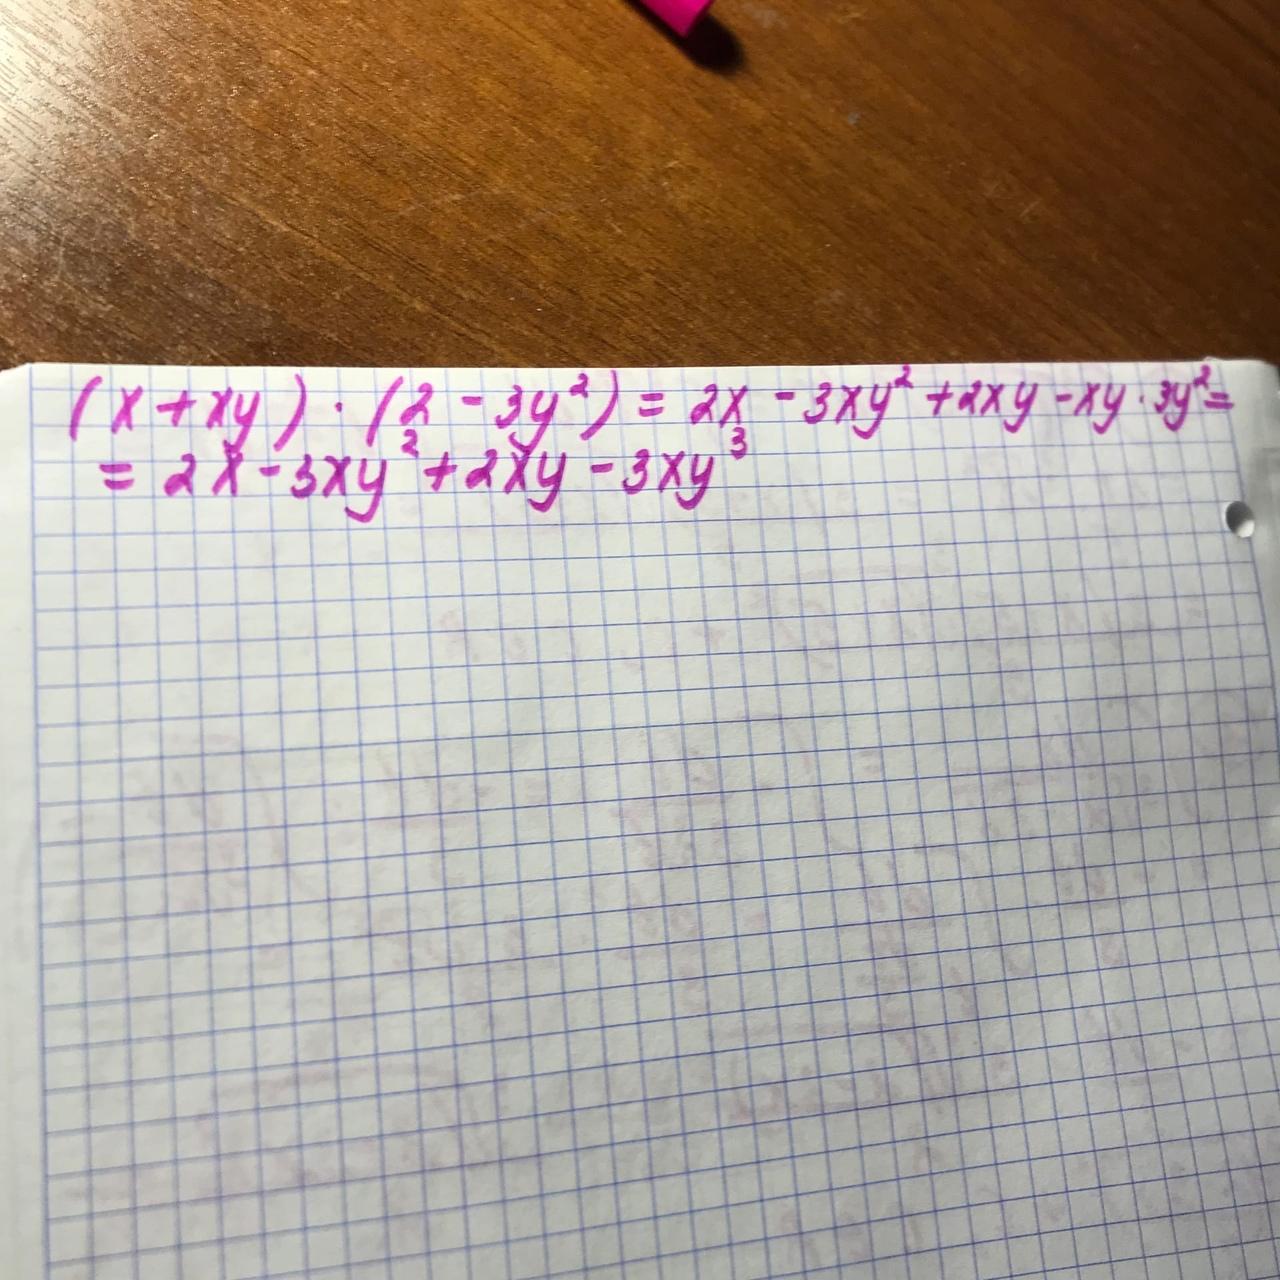 (x + xy) · (2 - 3y²) = 2x - 3xy² + 2xy - xy · 3y² =
= 2x - 3xy² + 2xy - 3xy³